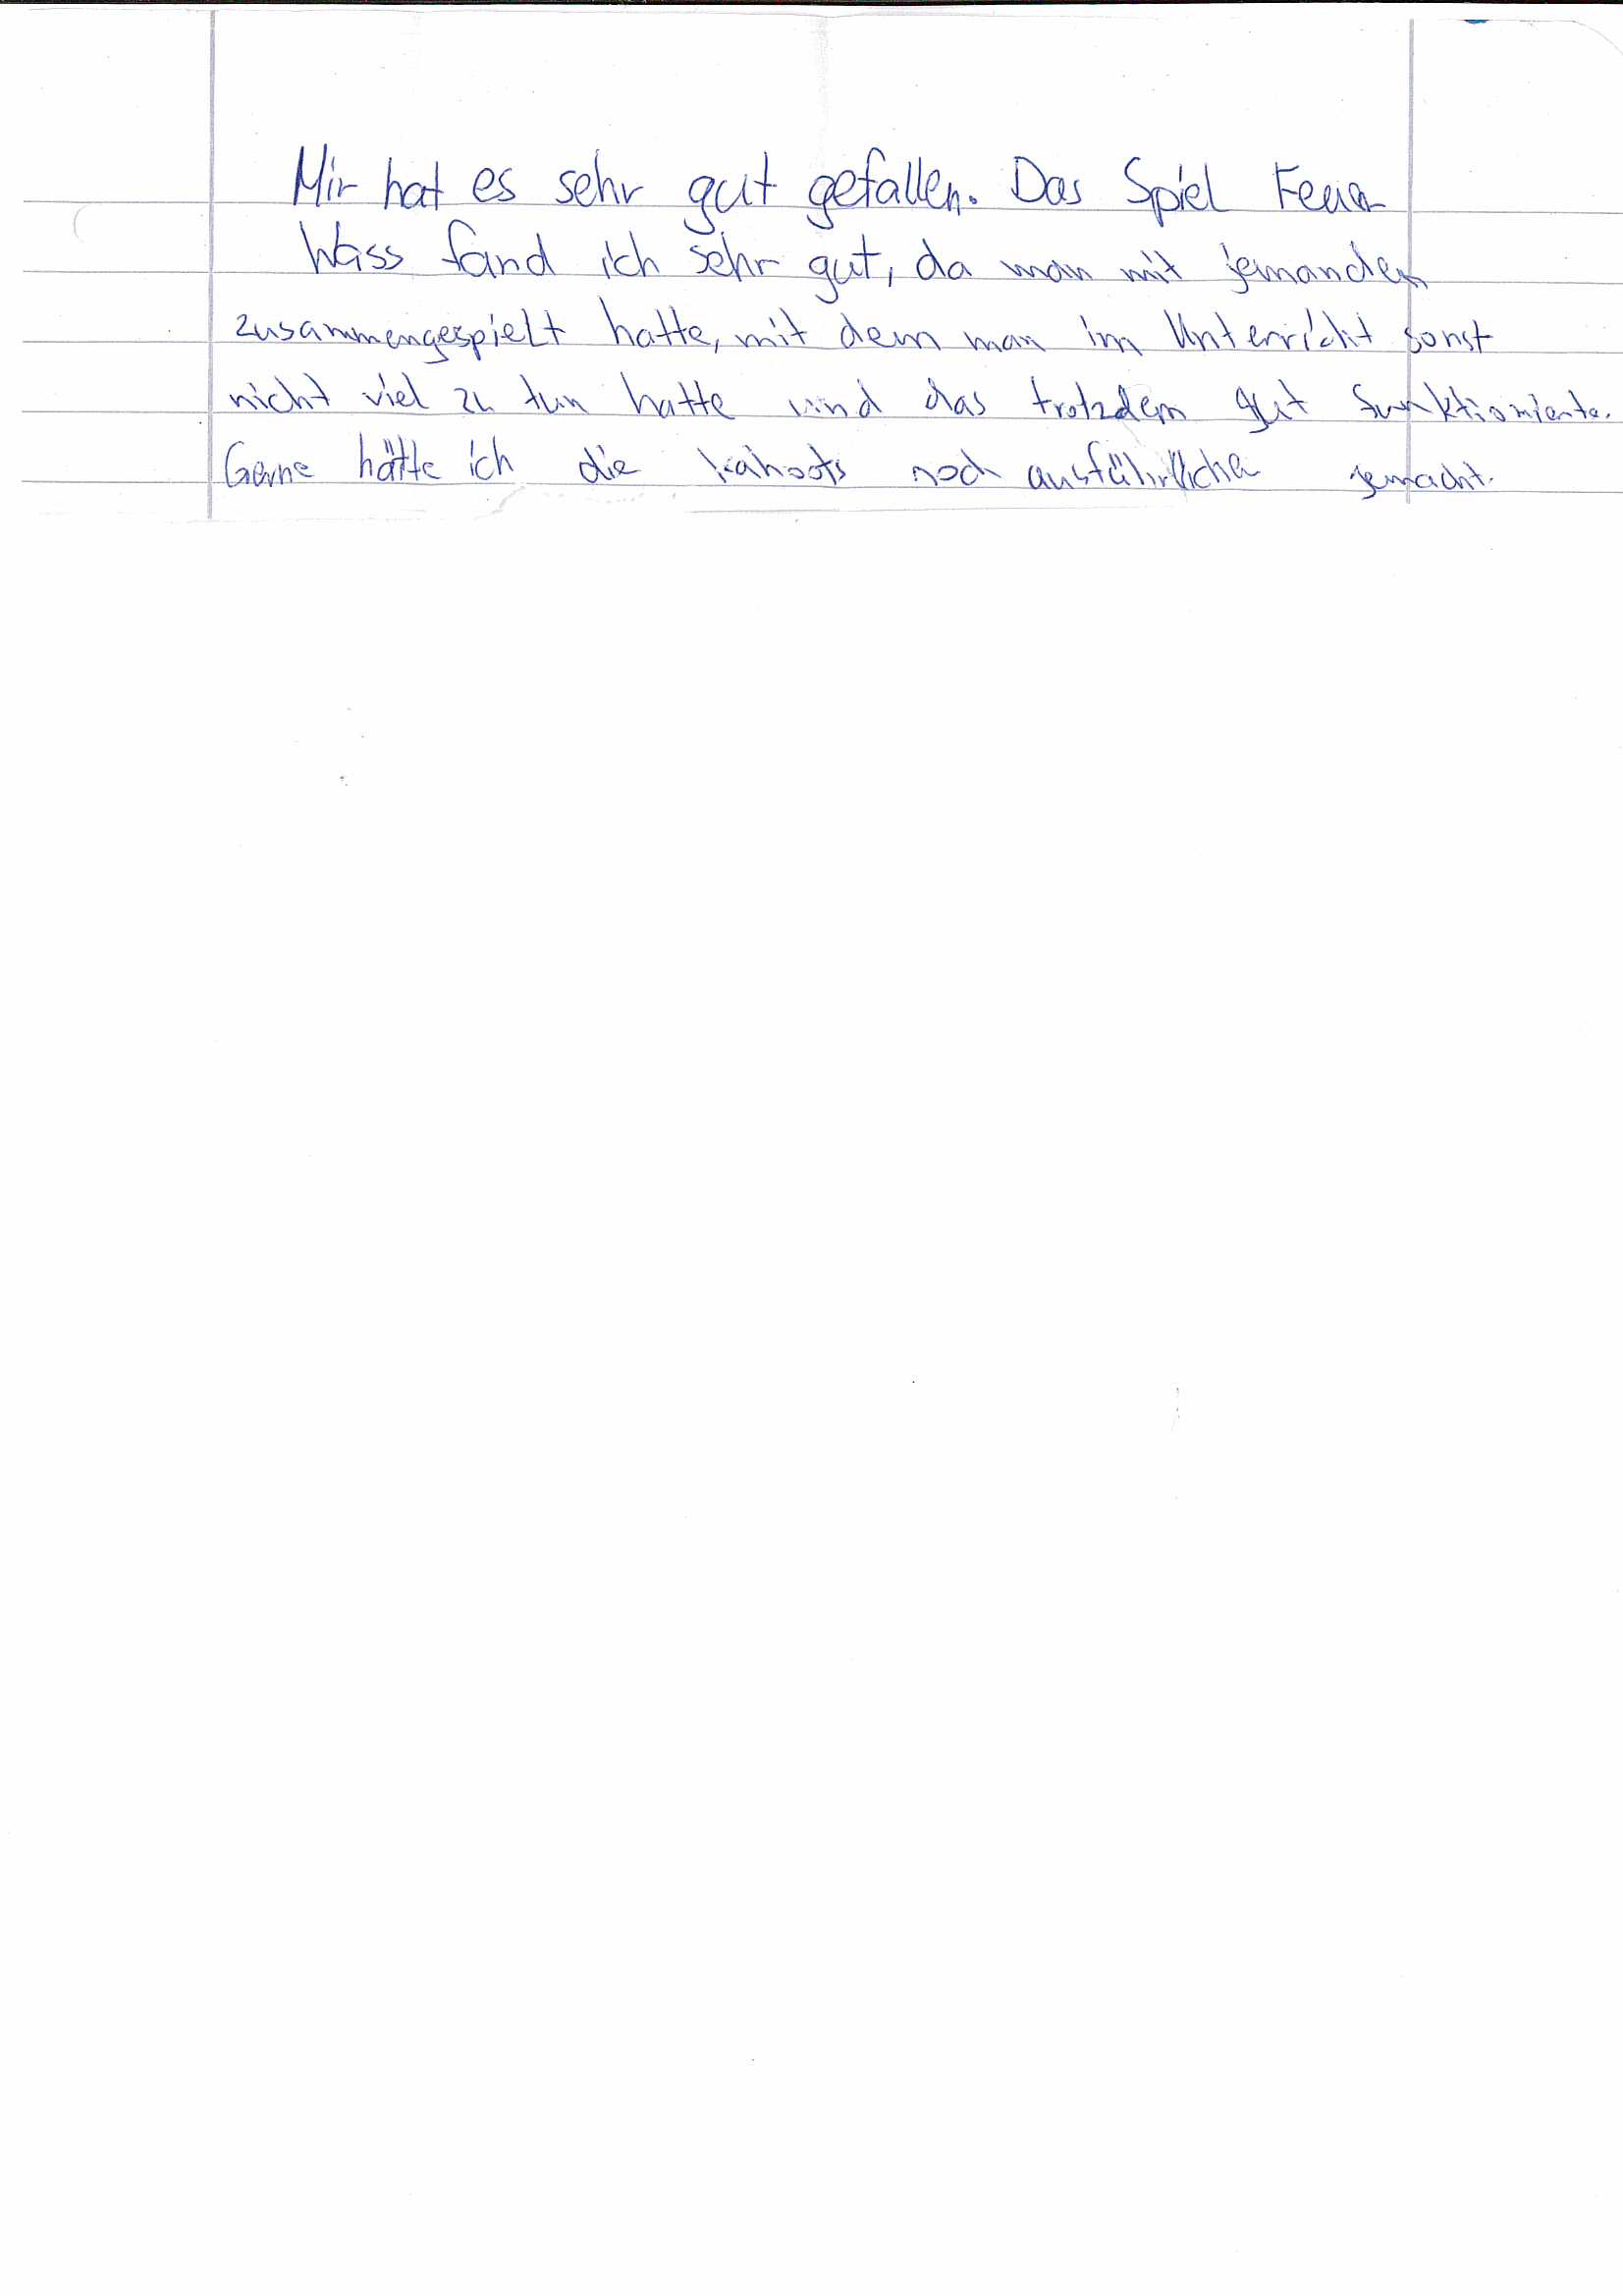 Mir hat es sehr gut gefallen. Das Spiel Feuer
Wass fand ich sehr gut, da man mit jemanden
zusammengespielt hatte, mit dem man im Unterricht sonst
nicht viel zu tun hatte und das trotzdem gut funktionierte.
Gerne hätte ich die kahoots noch ausführlicher gemacht.